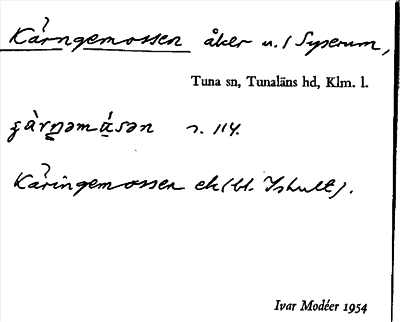 Kärngemossen åker u. / Syserum,
Tuna sn, Tunaläns hd, Klm. l.
s. 114.
Käringemossen ek (bl. Ishult).
Ivar Modéer 1954